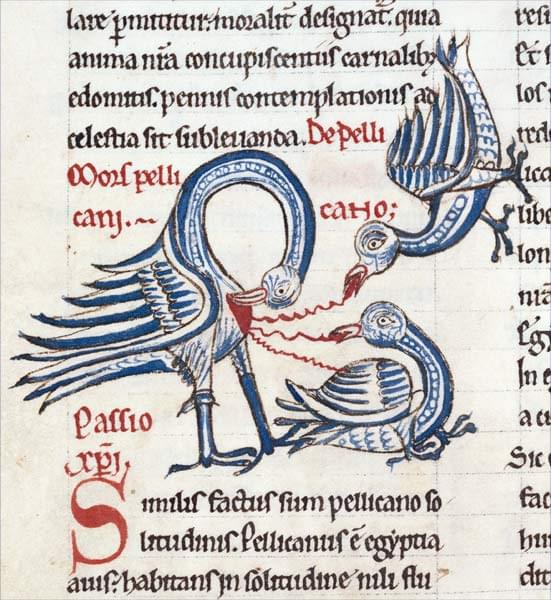 lare p̄mittitur: moralit̄ designat̄. quia
anima nr̄a concupiscentiis carnalib;
edomitis. pennis contemplationis ad
celestia sit subleuanda. De pelli
cano;
Mors pelli
cani.~
Passio
xp̄i
Similis factus sum pellicano so
litudinis. Pellicanus ē egyptia
auis: habitans in solitudine nili flu
resi
Et s
los
redi
ica
libe
lon
nr̄
Egy
In e
a cu
Sic
fac
hu
dit